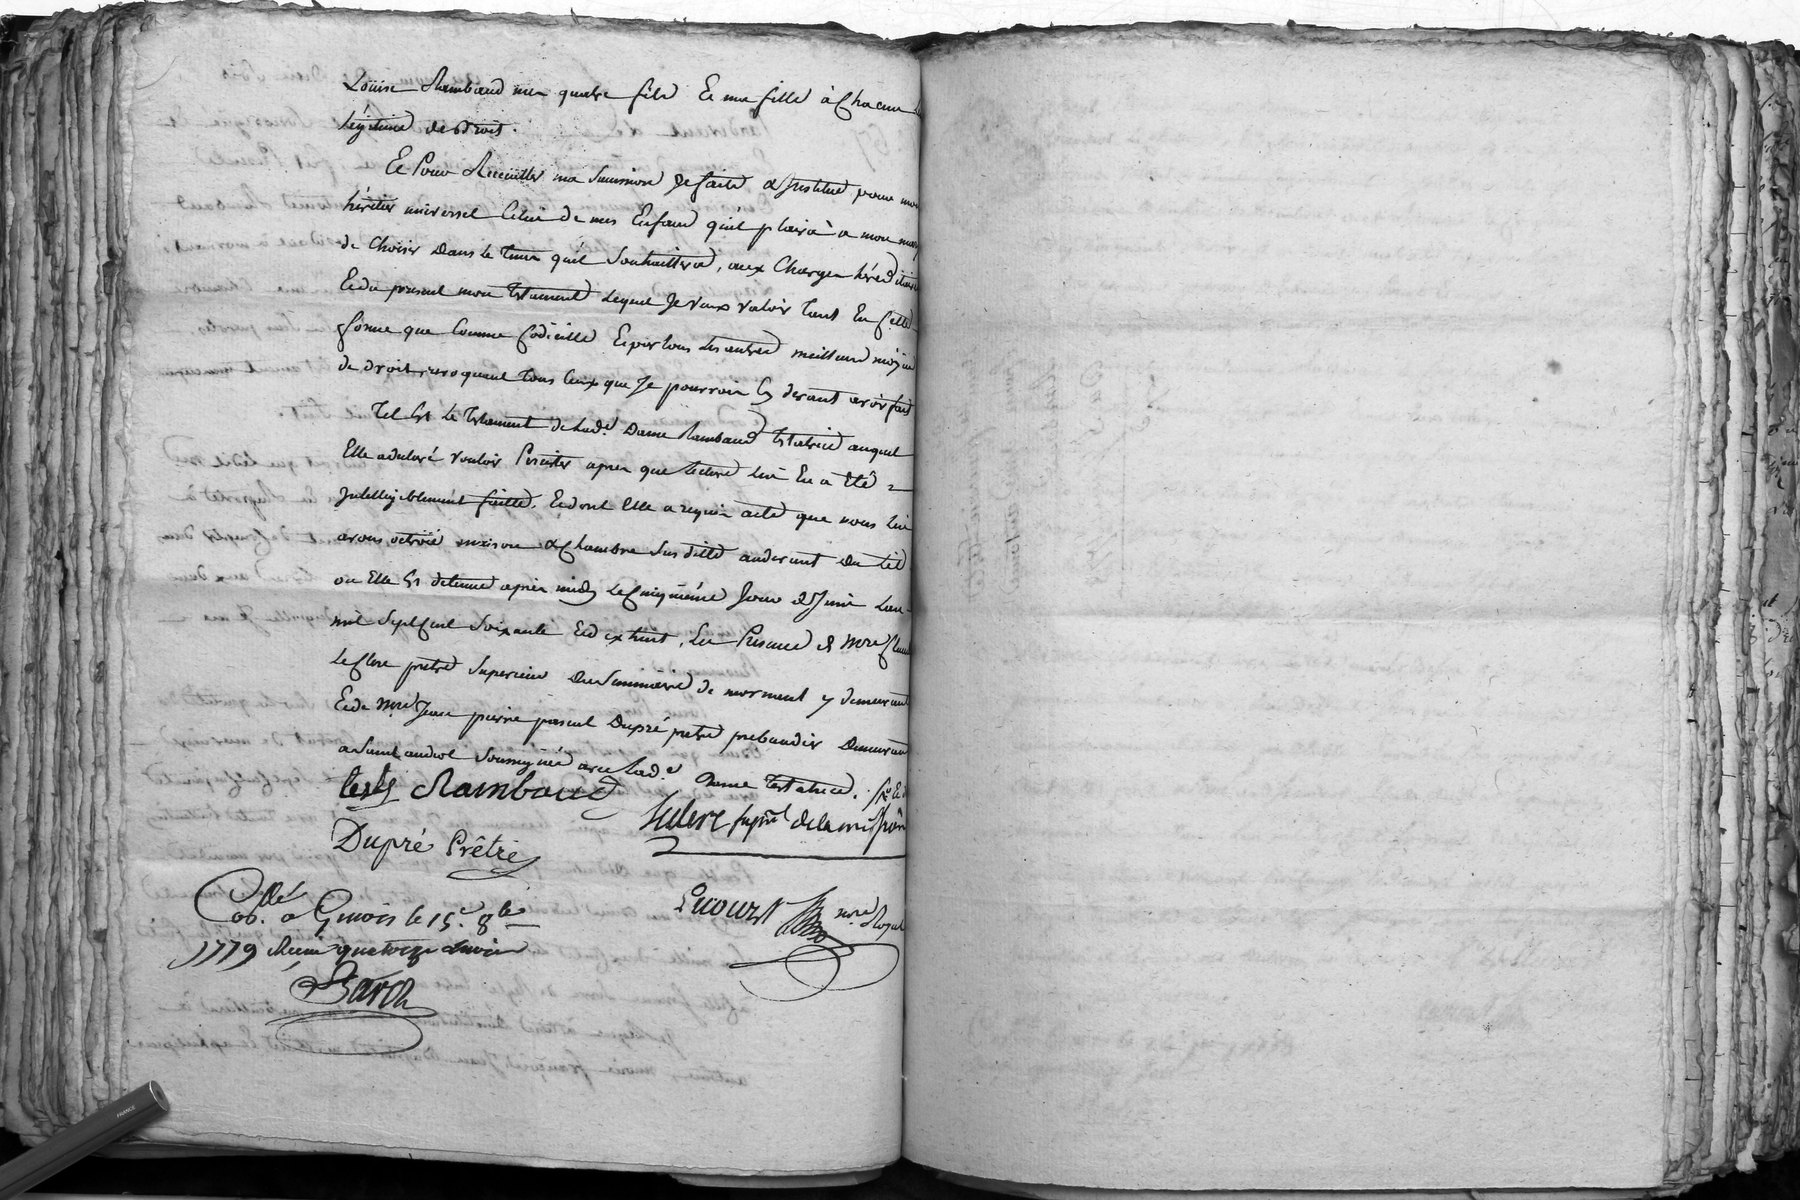 Loüise Rambaud mes quatre fils Et ma fille à Chacun
légitime de droit.
Et Pour Receüillir ma succession Je faite & Institue pour mon
héritier universel Celui de mes Enfans qu'il plaira à mon mary
de Choisir Dans le Tems qu'il Souhaittera, aux Charges héréditaires
Et du present mon testament Lequel Je veux valoir Tant En Cette
forme que Comme Codicille Et par tous les autres meilleurs moÿens
de droit, revoquant Tous Ceux que Je pourrois Cy devant avoir fait
Tel Est le Testament de lad.e Dame Rambaud testatrice auquel
Elle a declaré vouloir Persister apres que lecture lui En a Eté
Intelligiblement faitte. Et dont Elle a requis acte que nous lui
avons octroié maison & Chambre Sus ditte audevant Du lit
ou Elle Est detenue après midy le Cinquième Jour de Juin L'an
mil Sept Cent Soixante Et dix huit, En Presence de Mre Claude
Leclerc pretre Superieur Du Seminaire de mornant y demeurant
Et de Mre Jean pierre pascal Dupré pretre prebandier Demeurant
a Saint andéol Soussignés avec lad.e Dame testatrice.
Rambaud
Leclerc sup.r de la mission
Dupré Prêtre
Lecourt nore Royal
Con.llé à Givors le 15.e 8bre
1779 Reçu quatorze